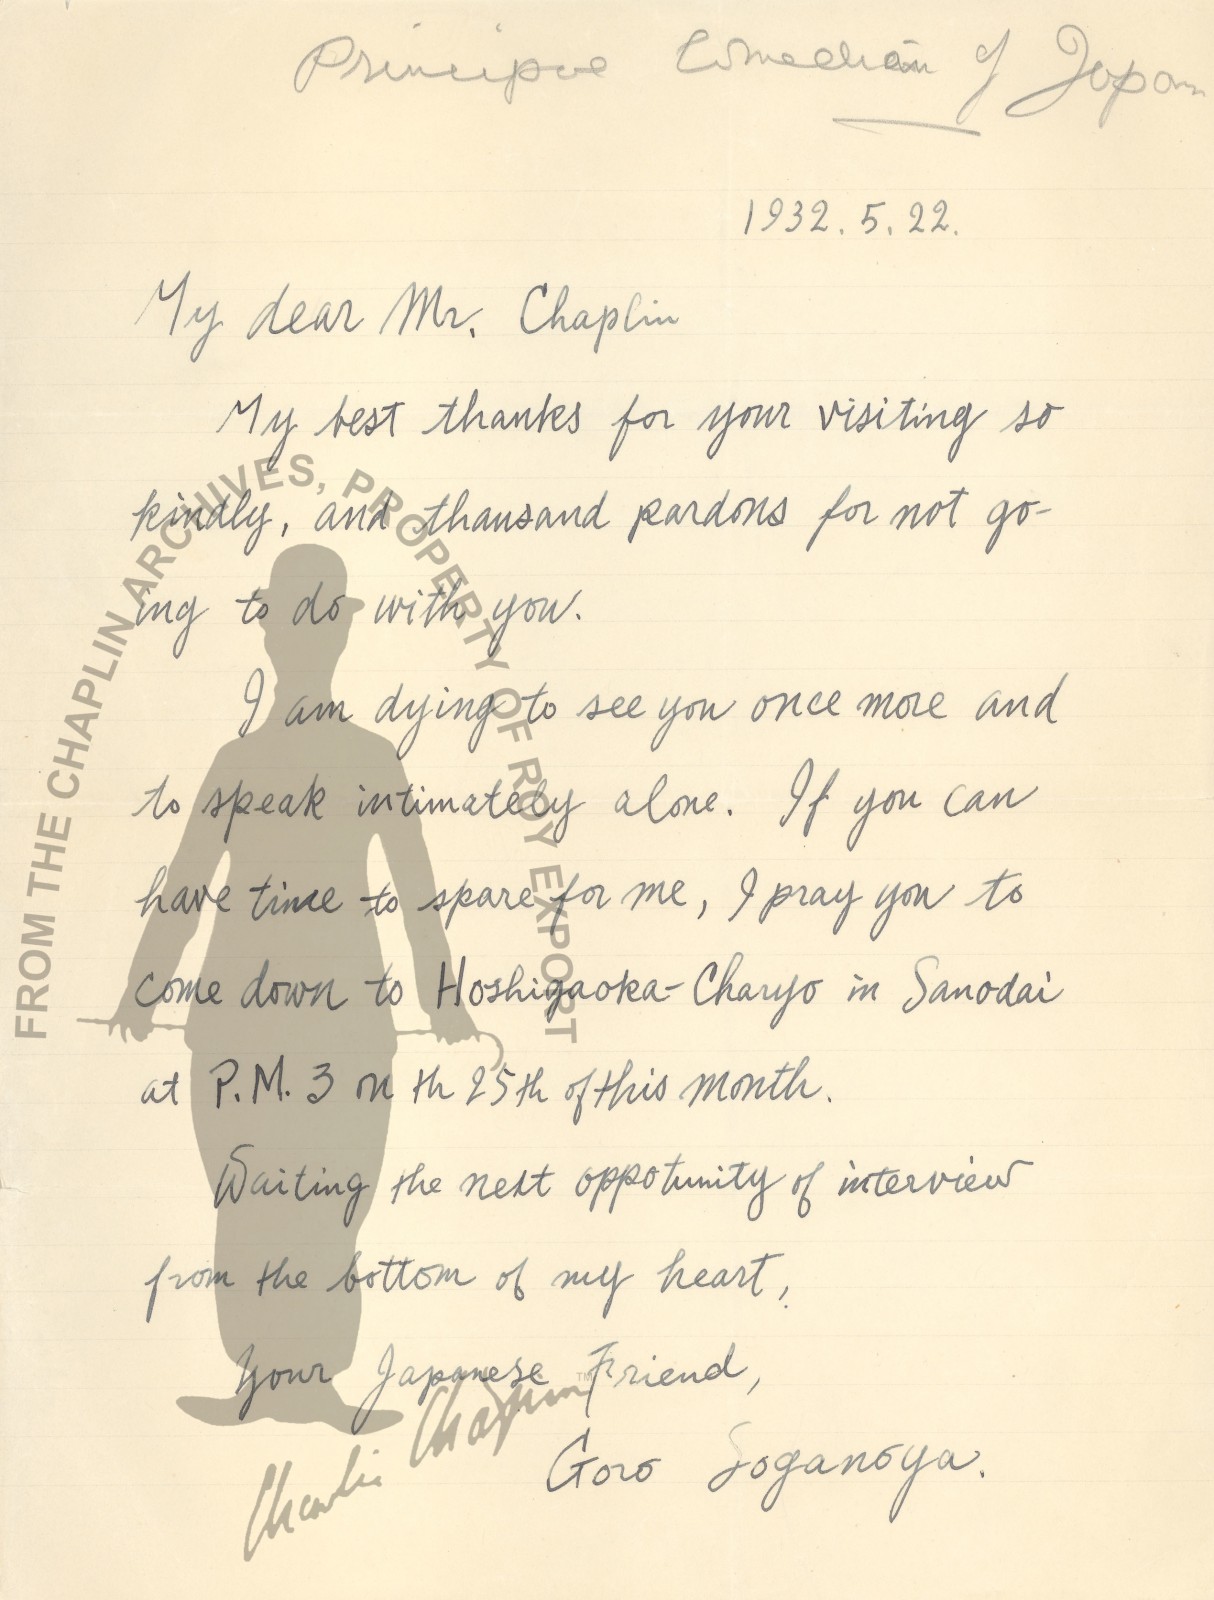 Principue Comedian of Japan
1932. 5. 22.
My dear Mr. Chaplin
My best thanks for your visiting so
kindly, and thausand pardons for not go-
ing to do with you.
I am dying to see you once more and
to speak intimately alone. If you can
have time to spare for me, I pray you to
come down to Hoshigaoka-Charyo in Sanodai
at P.M. 3 on th 25th of this month.
Waiting the next oppotunity of interview
from the bottom of my heart,
Your Japanese Friend,
Goro Soganoya.
FROM THE CHAPLIN ARCHIVES, PROPERTY OF ROY EXPORT
Charlie Chaplin™